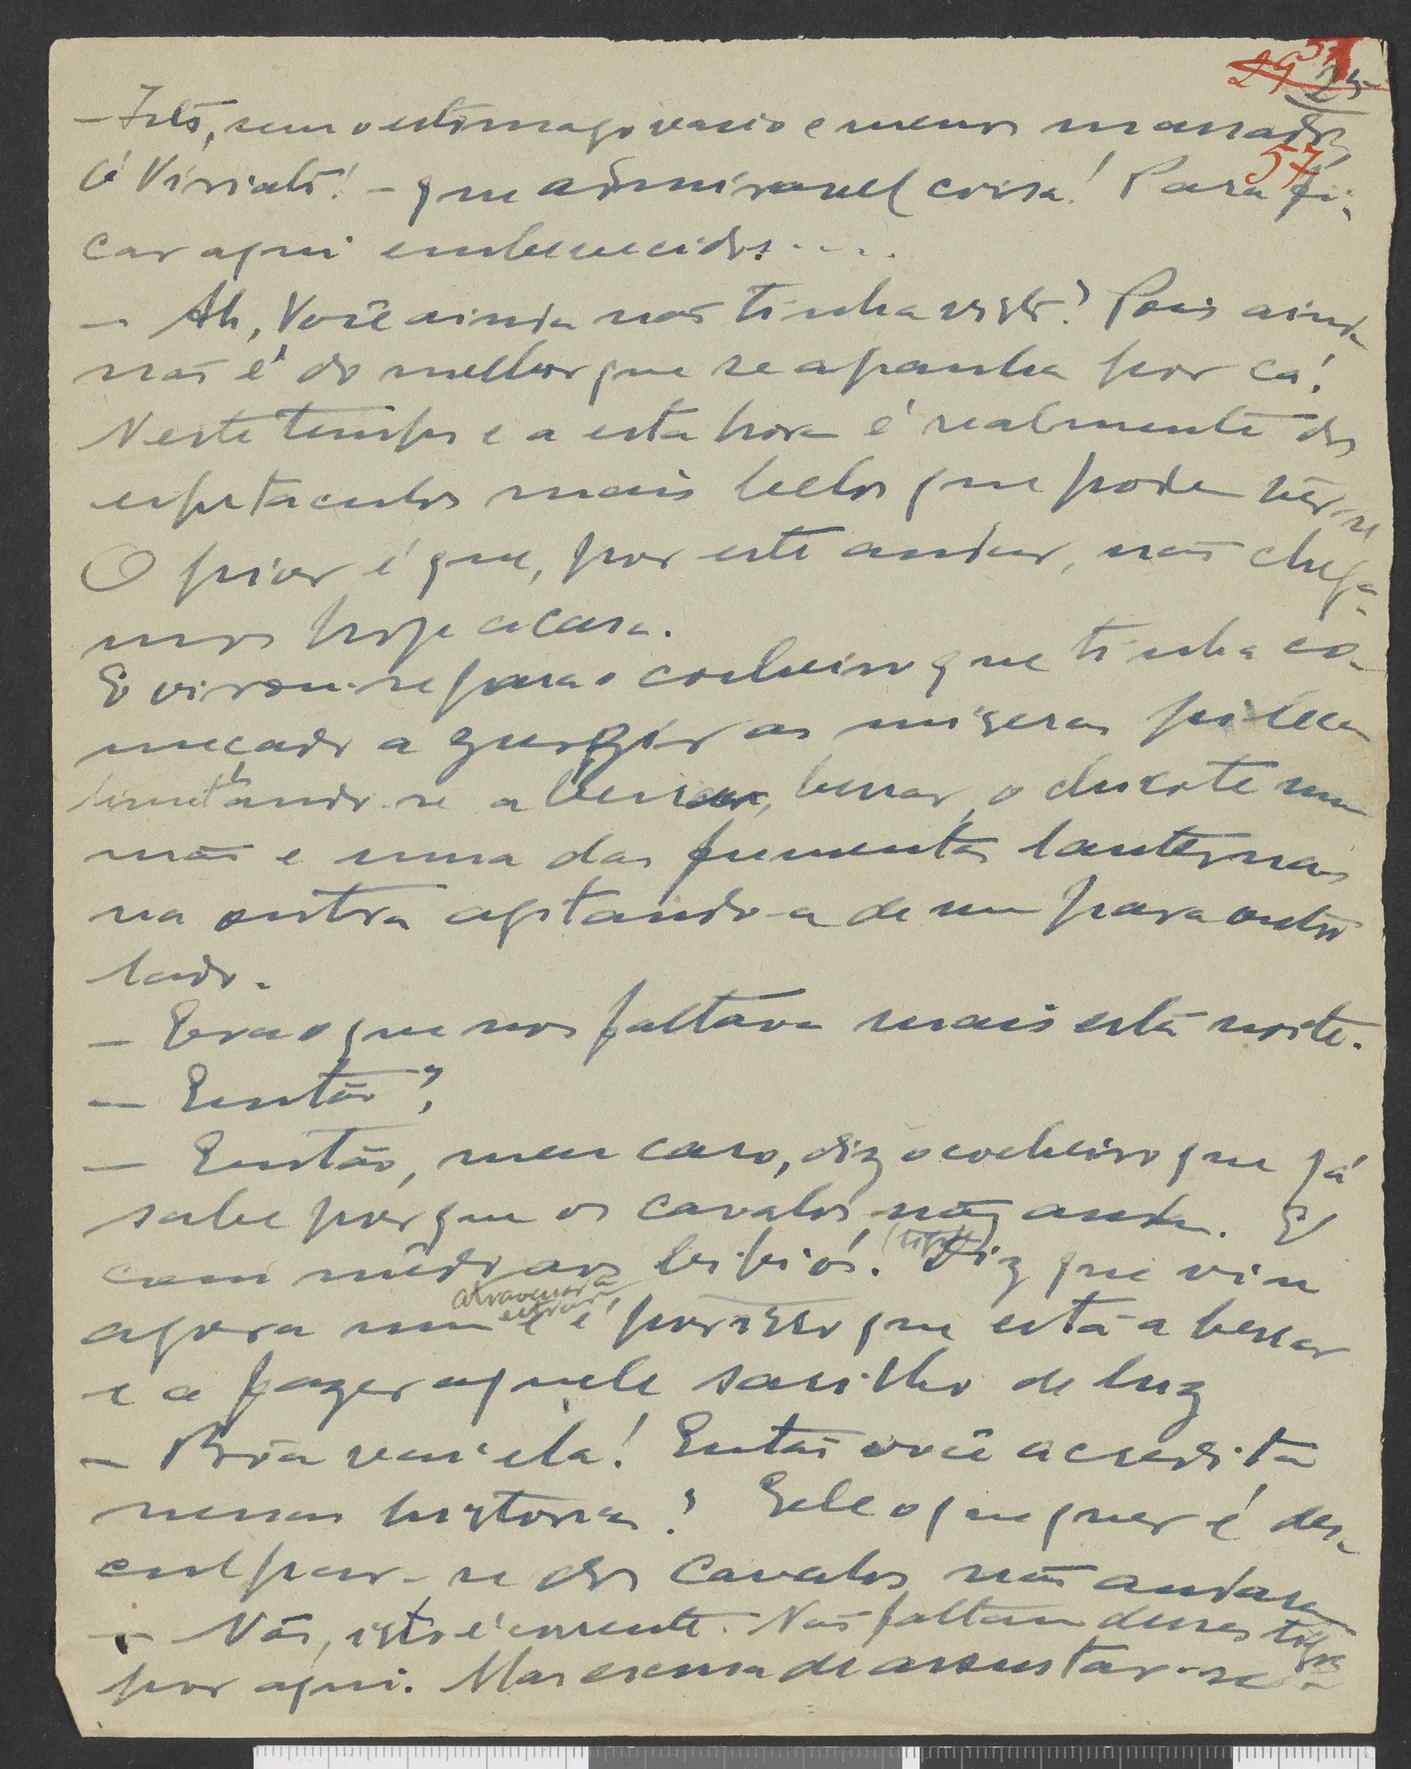 29 25
57
— Isto, sem o estomago vasio e menos massado,
ó Viriato! — que admiravel coisa! Para fi-
car aqui embevecido....
— Ah, Você ainda não tinha visto? Pois ainda
não é do melhor que se apanha por cá!
Neste tempo e a esta hora é realmente dos
espetaculos mais belos que podem vêr-se
O peior é que, por este andar, não chega-
mos hoje a casa.
E virou-se para o cocheiro que tinha co-
meçado a zurzir as miseras pilecas
limitando-se a berrar, berrar, o chicote numa
mão e uma das fumentas lanternas
na outra agitando-a de um para outro
lado.
— Era o que nos faltava mais esta noite.
— Então?
— Então, meu caro, diz o cocheiro que já
sabe porque os cavalos não andam. E
com mêdo aos bipiós! (tigre) Diz que viu
atravessar a estrada
agora um e é por isso que está a berrar
e a fazer aquele sarilho de luz
— Bôa vai ela! Então você acredita
nessas historias? Ele o que quer é des-
culpar-se dos cavalos não andarem
— Não, isto é corrente. Não faltam desses tigres
por aqui. Mas escusa de assustar-se.